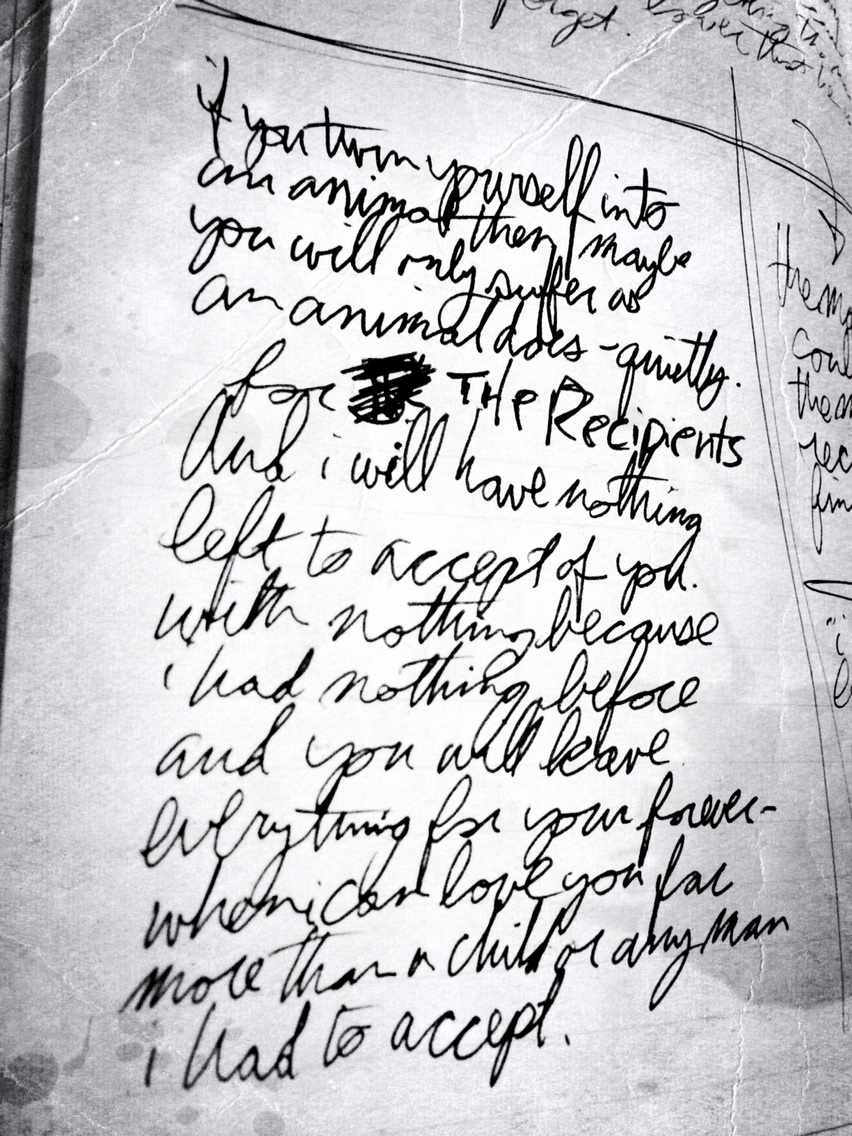 forget.
if you turn yourself into
an animal then maybe
you will only suffer as
an animal does - quietly.
for THe Recipients
And i will have nothing
left to accept of you.
with nothing because
i had nothing before
and you will leave
everything for your forever -
when i can love you far
more than a child or any man
i had to accept.